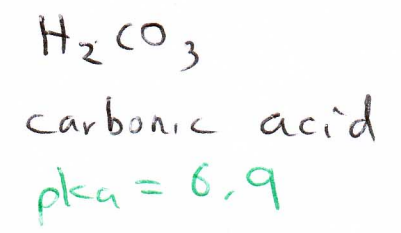 H₂CO₃
carbonic acid
pka = 6.9